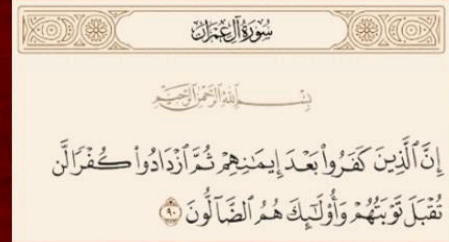 سُورَةُ آلِ عِمْرَانَ
بِسْمِ ٱللَّهِ ٱلرَّحْمَٰنِ ٱلرَّحِيمِ
إِنَّ ٱلَّذِينَ كَفَرُوا۟ بَعْدَ إِيمَٰنِهِمْ ثُمَّ ٱزْدَادُوا۟ كُفْرًا لَّن
تُقْبَلَ تَوْبَتُهُمْ وَأُو۟لَٰٓئِكَ هُمُ ٱلضَّآلُّونَ ٩٠